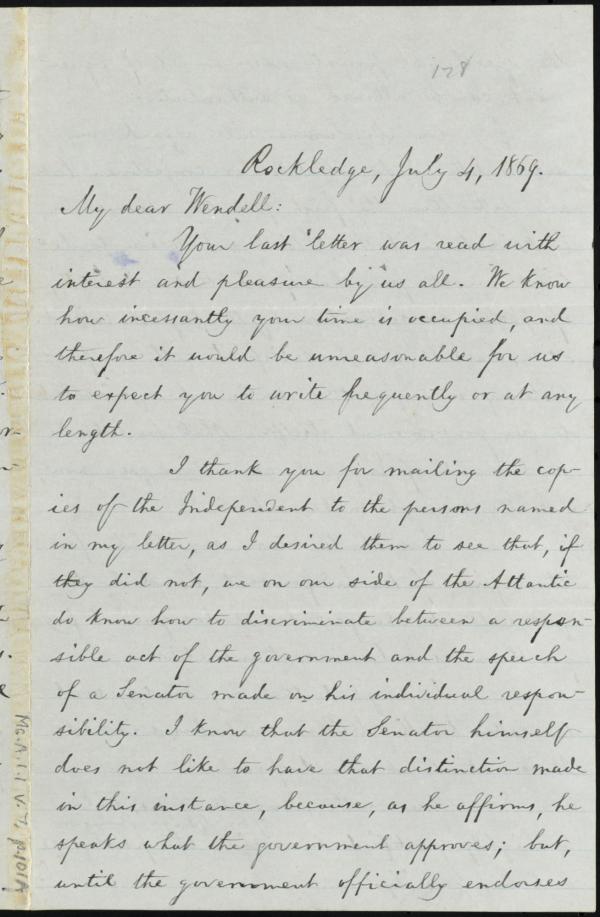 178
Rockledge, July 4, 1869.
My dear Wendell:
Your last letter was read with
interest and pleasure by us all. We know
how incessantly your time is occupied, and
therefore it would be unreasonable for us
to expect you to write frequently or at any
length.
I thank you for mailing the cop-
ies of the Independent to the persons named
in my letter, as I desired them to see that, if
they did not, we on our side of the Atlantic
do know how to discriminate between a respon-
sible act of the government and the speech
of a Senator made on his individual respon-
sibility. I know that the Senator himself
does not like to have that distinction made
in this instance, because, as he affirms, he
speaks what the government approves; but,
until the government officially endorses
Ms.A.1.1 v.7, p.101A